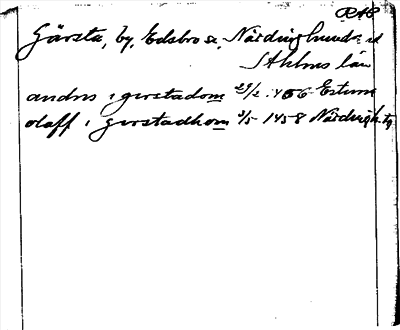 RAP
Gärsta, by, Edsbro sn, Närdinghundr. hd
Sthlms län
andrs i gerstadom 29/2 1456 Estuna
olaff i gerstadhom 3/5 1458 Närdingh. tg